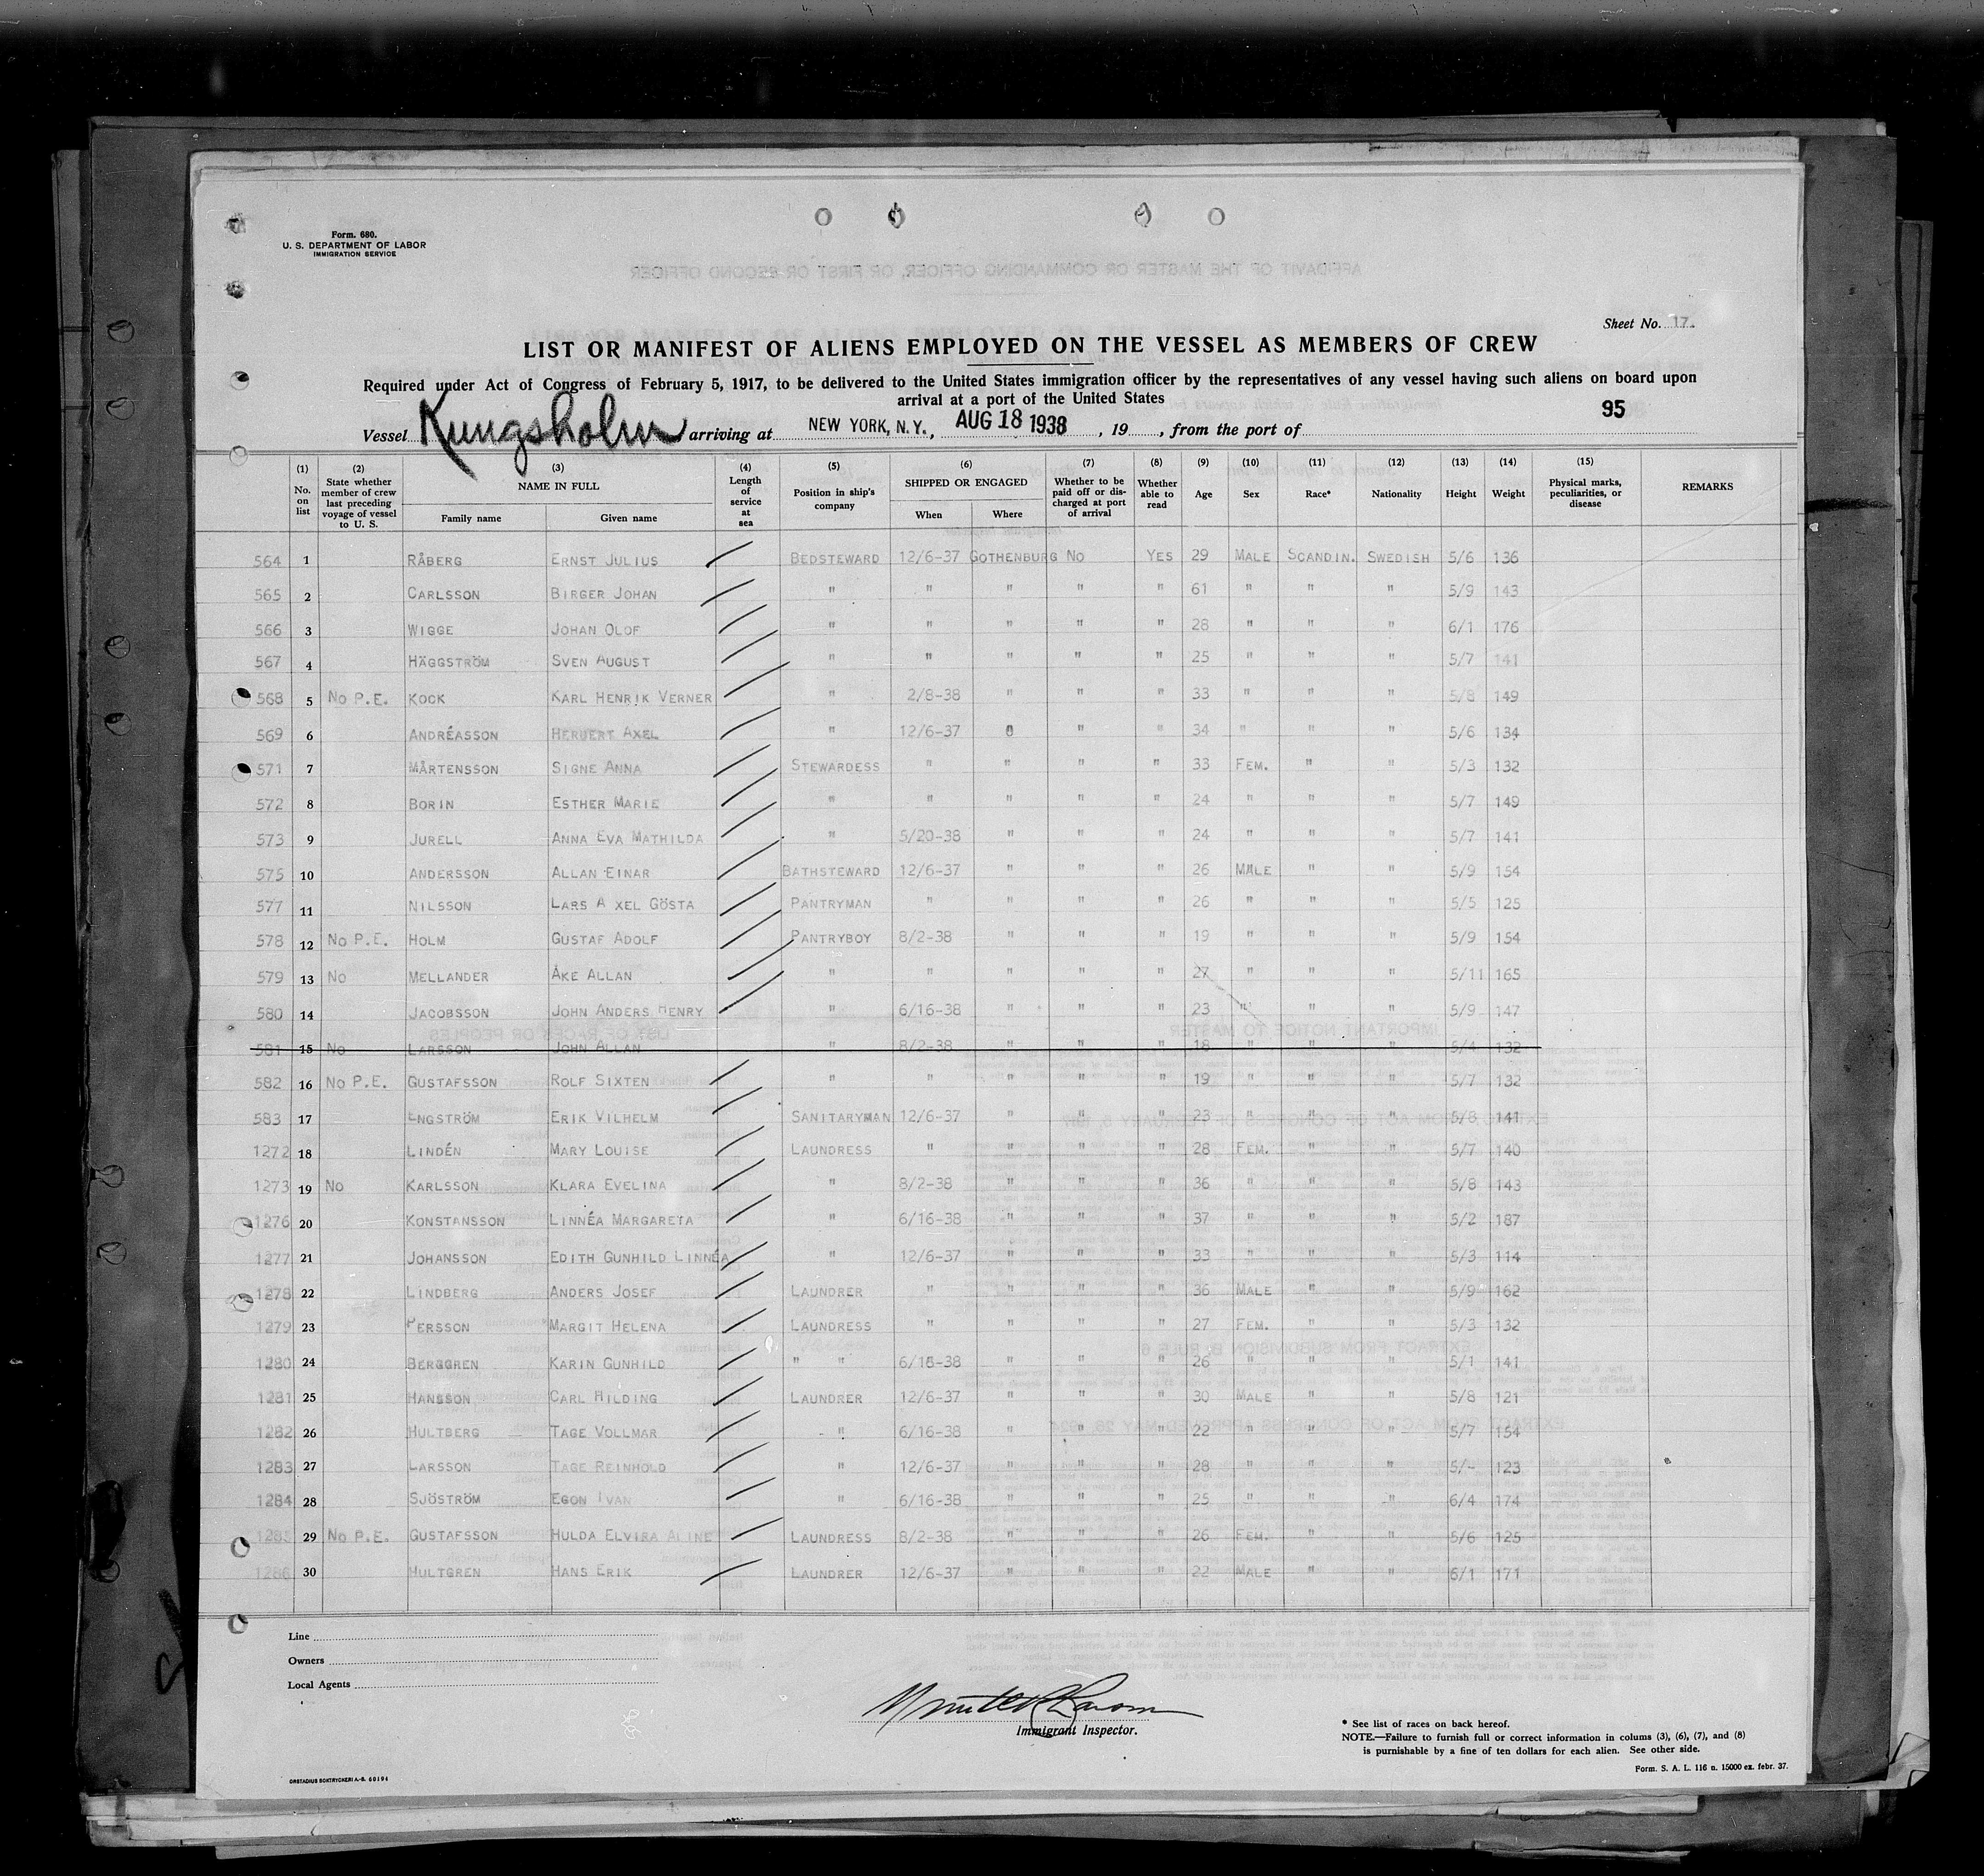 Form. 680.
U. S. DEPARTMENT OF LABOR
IMMIGRATION SERVICE
AFFIDAVIT OF THE MASTER OR COMMANDING OFFICER, OR FIRST OR SECOND OFFICER
Sheet No. 17.
LIST OR MANIFEST OF ALIENS EMPLOYED ON THE VESSEL AS MEMBERS OF CREW
Required under Act of Congress of February 5, 1917, to be delivered to the United States immigration officer by the representatives of any vessel having such aliens on board upon
arrival at a port of the United States
95
Vessel Kungsholm arriving at NEW YORK, N.Y., AUG 18 1938, 19 , from the port of
(1) No. on list (2) State whether member of crew last preceding voyage of vessel to U. S. (3) NAME IN FULL Family name Given name (4) Length of service at sea (5) Position in ship's company (6) SHIPPED OR ENGAGED When Where (7) Whether to be paid off or discharged at port of arrival (8) Whether able to read (9) Age (10) Sex (11) Race* (12) Nationality (13) Height (14) Weight (15) Physical marks, peculiarities, or disease REMARKS
564 1 RÅBERG ERNST JULIUS BEDSTEWARD 12/6-37 GOTHENBURG NO YES 29 MALE SCANDIN. SWEDISH 5/6 136
565 2 CARLSSON BIRGER JOHAN " " " " " 61 " " " 5/9 143
566 3 WIGGE JOHAN OLOF " " " " " 28 " " " 6/1 176
567 4 HÄGGSTRÖM SVEN AUGUST " " " " " 25 " " " 5/7 141
568 5 NO P.E. KOCK KARL HENRIK VERNER " 2/8-38 " " " 33 " " " 5/8 149
569 6 ANDRÉASSON HERBERT AXEL " 12/6-37 " " 34 " " " 5/6 134
571 7 MÅRTENSSON SIGNE ANNA STEWARDESS " " " " 33 FEM. " " 5/3 132
572 8 BORIN ESTHER MARIE " " " " " 24 " " " 5/7 149
573 9 JURELL ANNA EVA MATHILDA " 5/20-38 " " " 24 " " " 5/7 141
575 10 ANDERSSON ALLAN EINAR BATHSTEWARD 12/6-37 " " " 26 MALE " " 5/9 154
577 11 NILSSON LARS A XEL GÖSTA PANTRYMAN " " " " 26 " " " 5/5 125
578 12 NO P.E. HOLM GUSTAF ADOLF PANTRYBOY 8/2-38 " " " 19 " " " 5/9 154
579 13 NO MELLANDER ÅKE ALLAN " " " " " 27 " " " 5/11 165
580 14 JACOBSSON JOHN ANDERS HENRY " 6/16-38 " " " 23 " " " 5/9 147
581 15 NO LARSSON JOHN ALLAN " 8/2-38 " " " 18 " " " 5/4 132
582 16 NO P.E. GUSTAFSSON ROLF SIXTEN " " " " " 19 " " " 5/7 132
583 17 ENGSTRÖM ERIK VILHELM SANITARYMAN 12/6-37 " " " 23 " " " 5/8 141
1272 18 LINDÉN MARY LOUISE LAUNDRESS " " " " 28 FEM. " " 5/7 140
1273 19 NO KARLSSON KLARA EVELINA " 8/2-38 " " " 36 " " " 5/8 143
1276 20 KONSTANSSON LINNÉA MARGARETA " 6/16-38 " " " 37 " " " 5/2 187
1277 21 JOHANSSON EDITH GUNHILD LINNÉA " 12/6-37 " " " 33 " " " 5/3 114
1278 22 LINDBERG ANDERS JOSEF LAUNDRER " " " " 36 MALE " " 5/9 162
1279 23 PERSSON MARGIT HELENA LAUNDRESS " " " " 27 FEM. " " 5/3 132
1280 24 BERGGREN KARIN GUNHILD " " 6/16-38 " " " 26 " " " 5/1 141
1281 25 HANSSON CARL HILDING LAUNDRER 12/6-37 " " " 30 MALE " " 5/8 121
1282 26 HULTBERG TAGE VOLLMAR " 6/16-38 " " " 22 " " " 5/7 154
1283 27 LARSSON TAGE REINHOLD " 12/6-37 " " " 28 " " " 5/- 123
1284 28 SJÖSTRÖM EGON IVAN " 6/16-38 " " " 25 " " " 6/4 174
1285 29 NO P.E. GUSTAFSSON HULDA ELVIRA ALINE LAUNDRESS 8/2-38 " " " 26 FEM. " " 5/6 125
1286 30 HULTGREN HANS ERIK LAUNDRER 12/6-37 " " " 22 MALE " " 6/1 171
Line
Owners
Local Agents
Immigrant Inspector.
* See list of races on back hereof.
NOTE.—Failure to furnish full or correct information in colums (3), (6), (7), and (8)
is punishable by a fine of ten dollars for each alien. See other side.
ORSTADIUS BOKTRYCKERI A.-B. 60194
Form. S. A. L. 116 n. 15000 ex. febr. 37.